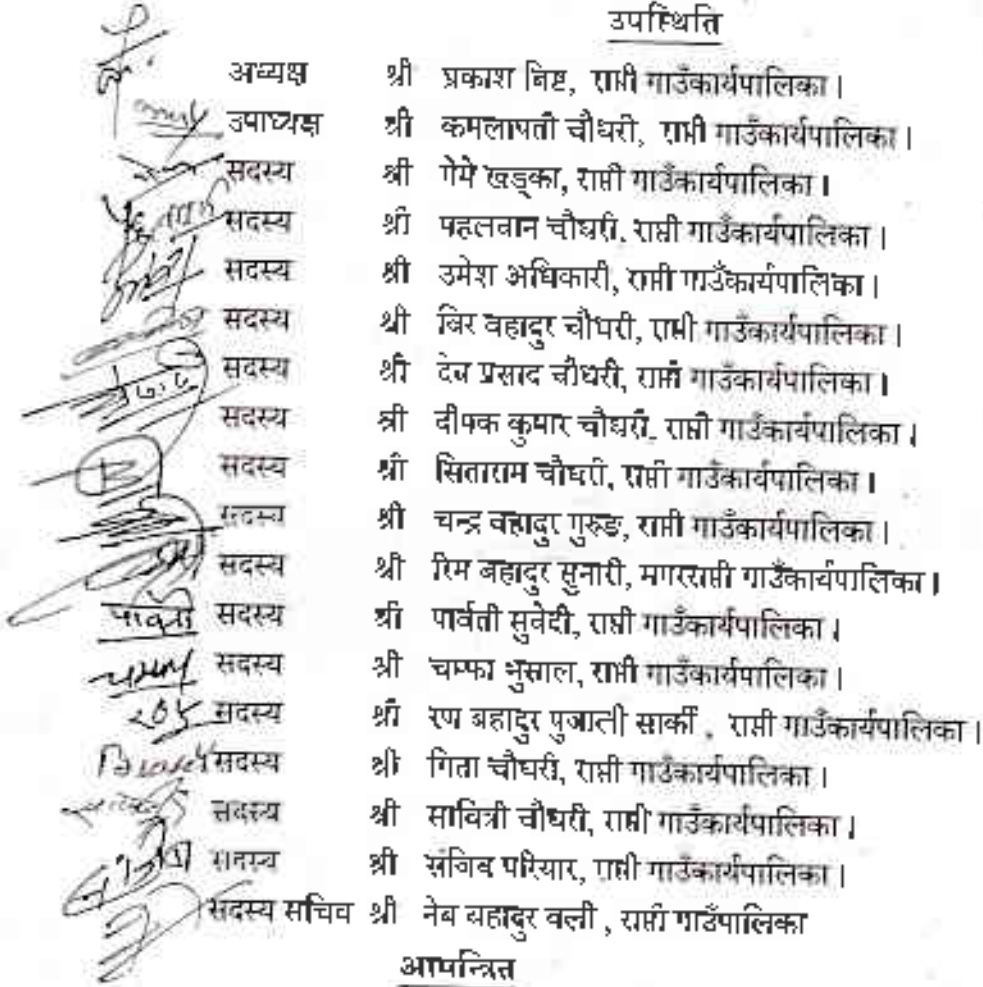 उपस्थिति
अध्यक्ष श्री प्रकाश बिष्ट, राप्ती गाउँकार्यपालिका ।
उपाध्यक्ष श्री कमलापती चौधरी, राप्ती गाउँकार्यपालिका ।
सदस्य श्री गेमे खड्का, राप्ती गाउँकार्यपालिका ।
सदस्य श्री पहलवान चौधरी, राप्ती गाउँकार्यपालिका ।
सदस्य श्री उमेश अधिकारी, राप्ती गाउँकार्यपालिका ।
सदस्य श्री बिर वहादुर चौधरी, राप्ती गाउँकार्यपालिका ।
सदस्य श्री देव प्रसाद चौधरी, राप्ती गाउँकार्यपालिका ।
सदस्य श्री दीपक कुमार चौधरी, राप्ती गाउँकार्यपालिका ।
सदस्य श्री सिताराम चौधरी, राप्ती गाउँकार्यपालिका ।
सदस्य श्री चन्द्र वहादुर गुरुङ, राप्ती गाउँकार्यपालिका ।
सदस्य श्री रिम बहादुर सुनारी, मगरराप्ती गाउँकार्यपालिका ।
सदस्य श्री पार्वती सुवेदी, राप्ती गाउँकार्यपालिका ।
सदस्य श्री चम्फा भुसाल, राप्ती गाउँकार्यपालिका ।
सदस्य श्री रण बहादुर पुजाली सार्की , राप्ती गाउँकार्यपालिका ।
सदस्य श्री गिता चौधरी, राप्ती गाउँकार्यपालिका ।
सदस्य श्री सावित्री चौधरी, राप्ती गाउँकार्यपालिका ।
सदस्य श्री संजिव परियार, राप्ती गाउँकार्यपालिका ।
सदस्य सचिव श्री नेब बहादुर वली , राप्ती गाउँपालिका
आमन्त्रित